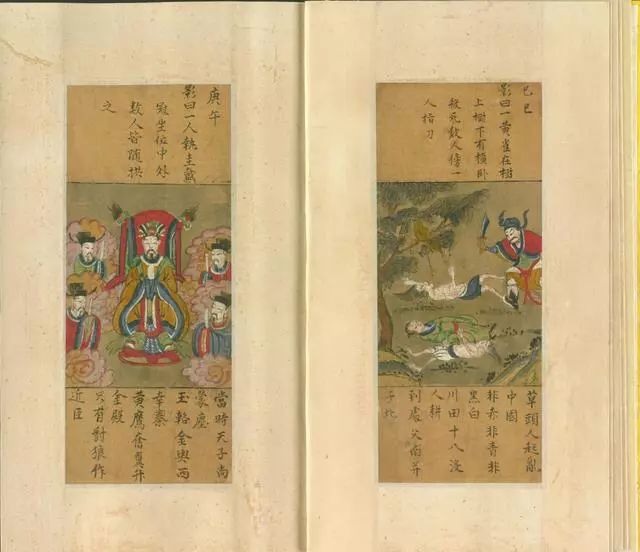 己巳
影曰一黃雀在樹
上樹下有橫卧
殺死數人傍一
人指刀
草頭人起亂
中國
非赤非青非
黑白
川田十八沒
人耕
到處父南并
子北
庚午
影曰一人執圭戴
冠坐位中外
數人皆隨拱
之
當時天子尚
蒙塵
玉輅金輿西
幸秦
黃鷹奮翼升
金殿
只有豺狼作
近臣